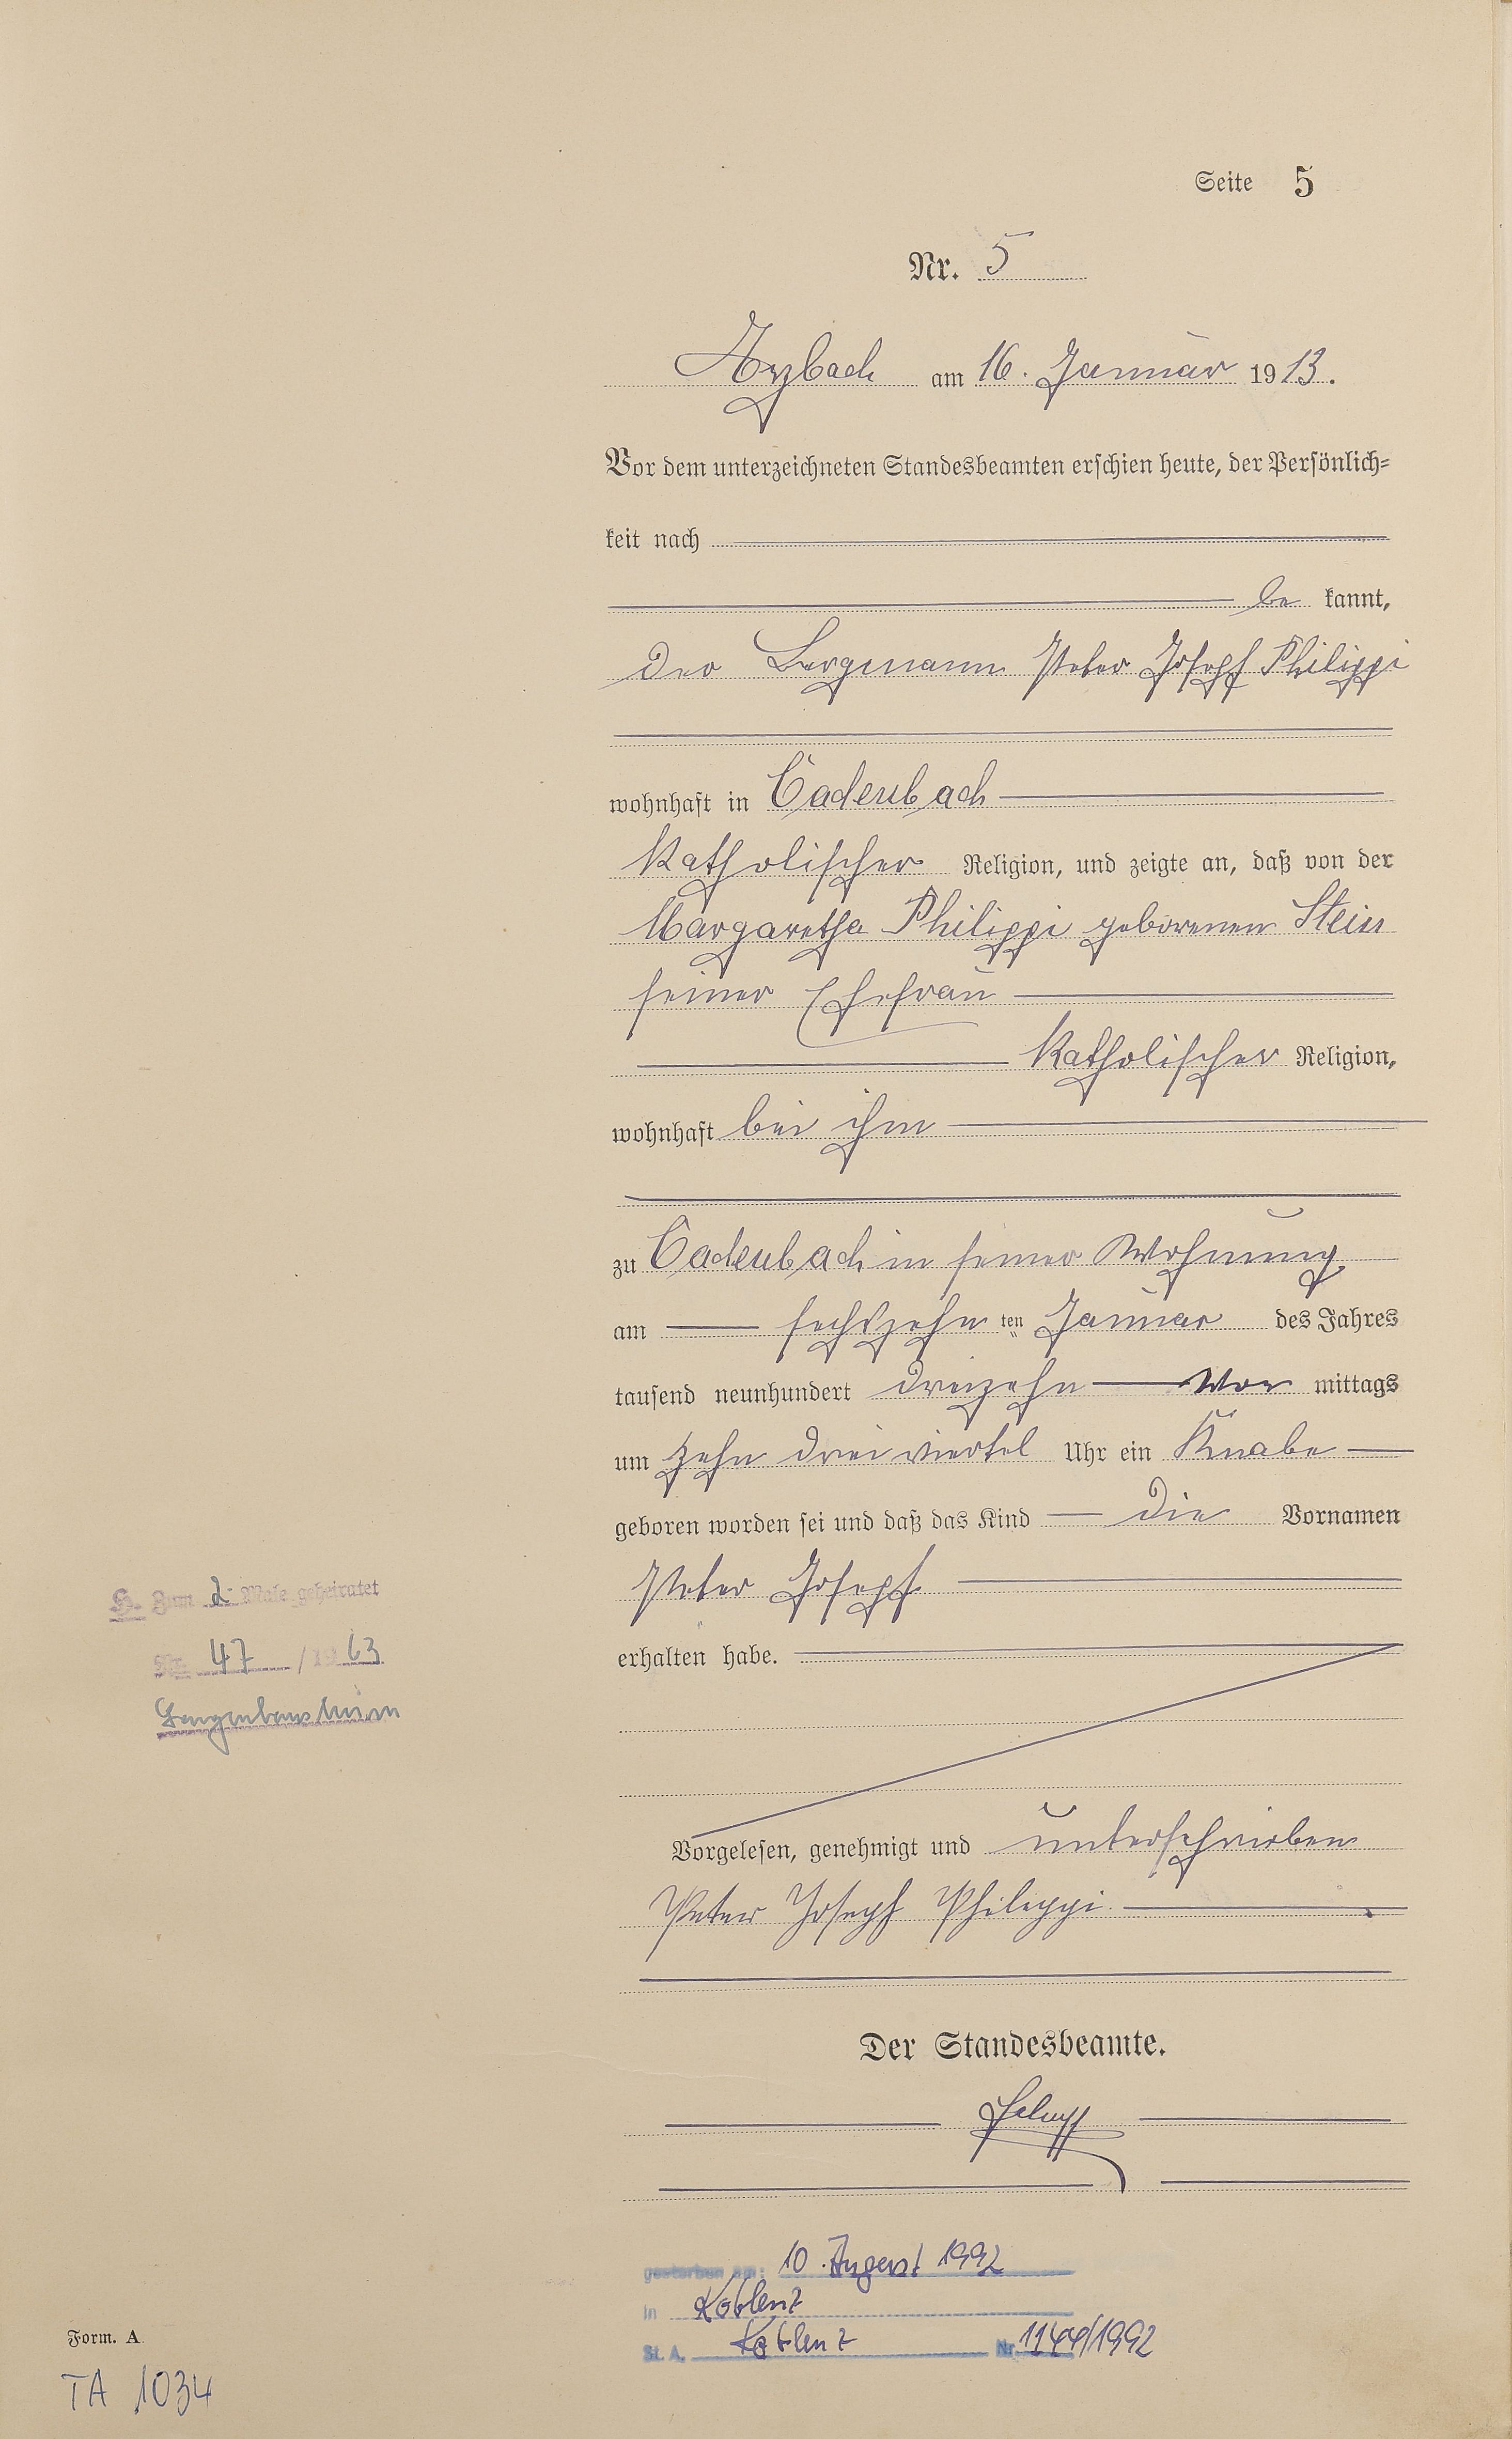 Seite 5
Nr. 5
Arzbach am 16. Januar 1913.
Vor dem unterzeichneten Standesbeamten erschien heute, der Persönlich=
keit nach
be kannt,
der Bergmann Peter Joseph Philippi
wohnhaft in Cadenbach
katholischer Religion, und zeigte an, daß von der
Margaretha Philippi geborenen Stein
seiner Ehefrau
katholischer Religion,
wohnhaft bei ihm
zu Cadenbach in seiner Wohnung
am sechszehn ten Januar des Jahres
tausend neunhundert dreizehn Vor mittags
um zehn drei viertel Uhr ein Knabe
geboren worden sei und daß das Kind die Vornamen
Peter Joseph
erhalten habe.
H. Zum 2. Male geheiratet
Nr. 47 / 1963
Vorgelesen, genehmigt und unterschrieben
Peter Joseph Philippi.
Der Standesbeamte.
gestorben am: 10. August 1992
in Koblenz
St. A. Koblenz Nr. 1144/1992
Form. A
TA 1034